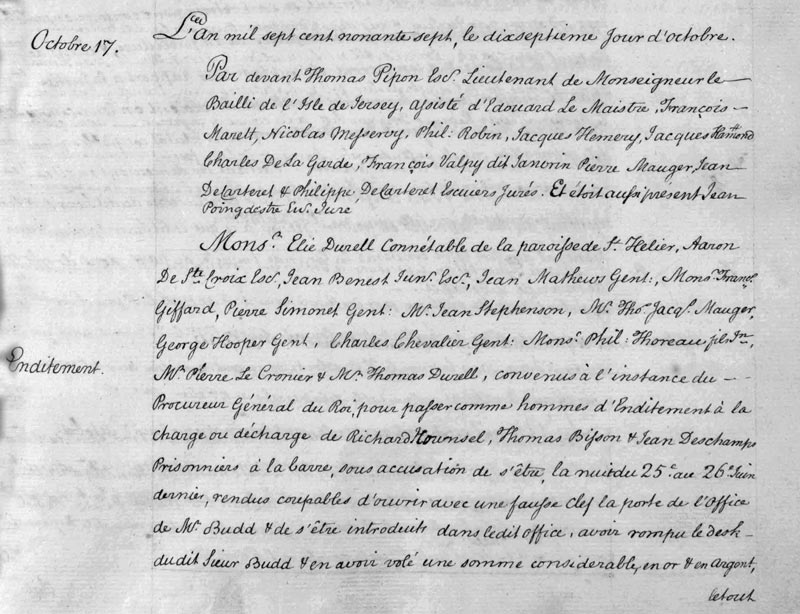 Octobre 17.
L'an mil sept cent nonante sept, le dixseptieme Jour d'octobre.
Par devant Thomas Pipon Escr. Lieutenant de Monseigneur le
Bailli de l'Isle de Jersey, assisté d'Edouard Le Maistre, François
Marett, Nicolas Messervy, Phil: Robin, Jacques Hemery, Jacques Hamond
Charles De La Garde, François Valpy dit Janvrin Pierre Mauger Jean
DeCarteret & Philippe DeCarteret Escuiers Jurés. Et étoit aussi présent Jean
Poingdestre Escr. Juré
Monsr. Elie Durell Connétable de la paroisse de St. Helier, Aaron
De Ste. Croix Escr., Jean Benest Junr. Escr., Jean Mathews Gent:, Monsr. Franç.
Giffard, Pierre Simonet Gent: Mr. Jean Stephenson, Mr. Tho. Jacqs. Mauger,
George Hooper Gent, Charles Chevalier Gent: Monsr. Phil: Thoreau fils Jn.,
Enditement.
Mr. Pierre Le Cronier & Mr. Thomas Durell, convenus à l'instance du
Procureur Général du Roi, pour passer comme hommes d'Enditement à la
charge ou décharge de Richard Hounsel, Thomas Bisson & Jean Deschamps
Prisonniers à la barre, sous accusation de s'être, la nuit du 25e. au 26e. Juin
dernier, rendus coupables d'ouvrir avec une fausse Clef la porte de l'Office
de Mr. Budd & de s'être introduits dans ledit Office, avoir rompu le desk
du dit Sieur Budd & en avoir volé une somme considerable, en or & en Argent,
le tout